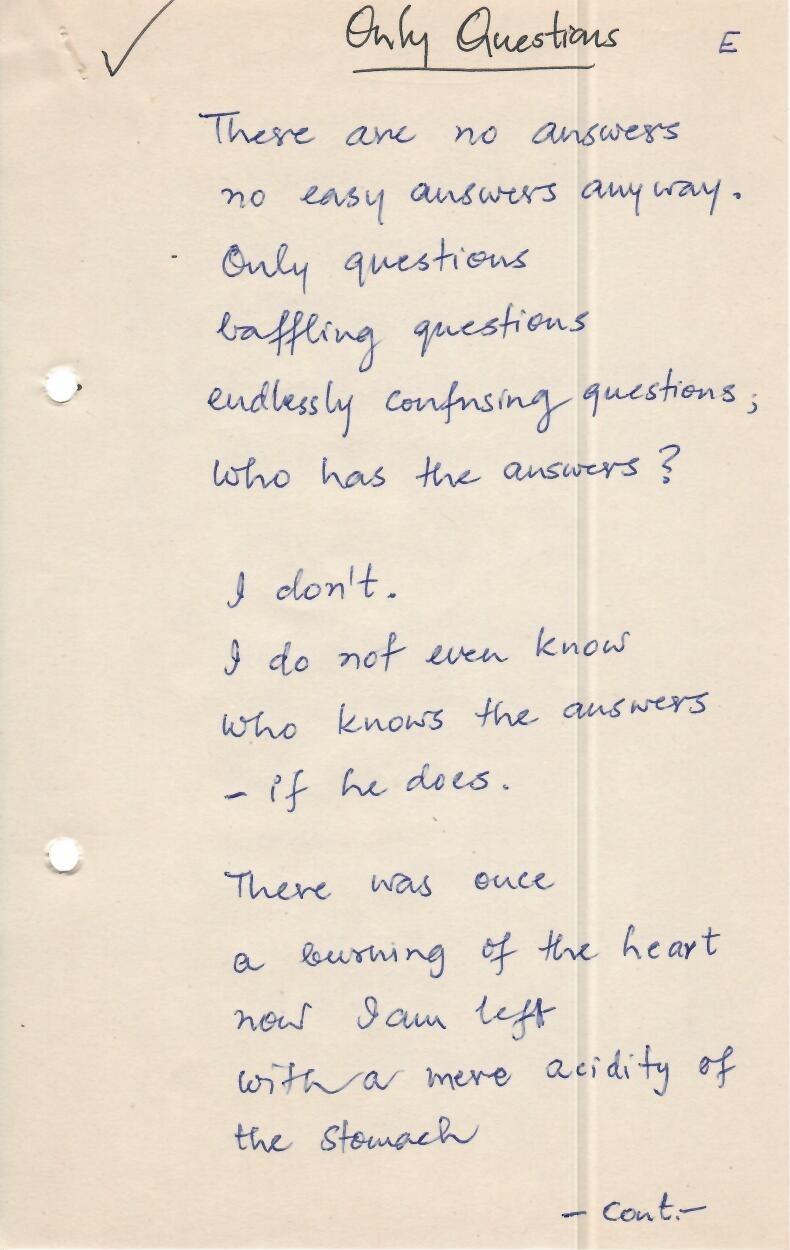 Only Questions
E
There are no answers
no easy answers anyway.
Only questions
baffling questions
endlessly confusing questions;
Who has the answers?
I don't.
I do not even know
who knows the answers
- if he does.
There was once
a burning of the heart
now I am left
with a mere acidity of
the stomach
- cont.-